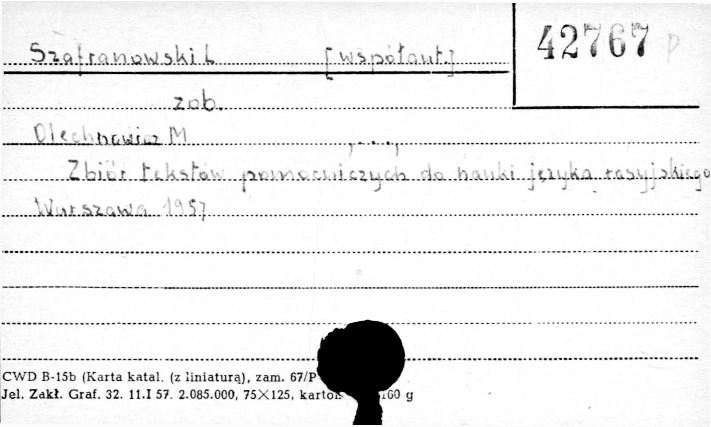 Szafranowski L [współaut.]
42767 p
zob.
Olechnowicz M , . . . ,
Zbiór tekstów pomocniczych do nauki języka rosyjskiego
Warszawa 1957
CWD B-15b (Karta katal. (z liniaturą), zam. 67/P
Jel. Zakł. Graf. 32. 11.I 57. 2.085.000, 75×125, karton 160 g